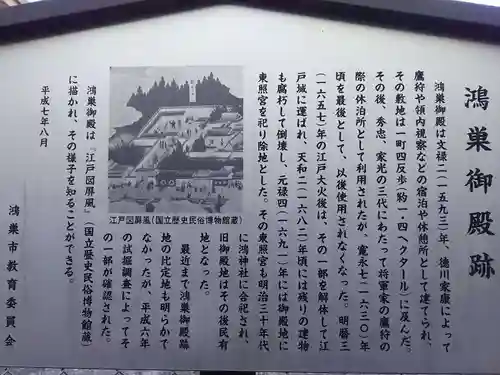 鴻巣御殿跡
鴻巣御殿は文禄二(一五九三)年、徳川家康によって
鷹狩や領内視察などの宿泊や休憩所として建てられ、
その敷地は一町四反歩(約一・四ヘクタール)に及んだ。
その後、秀忠、家光の三代にわたって将軍家の鷹狩の
際の休泊所として利用されたが、寛永七(一六三〇)年
頃を最後として、以後使用されなくなった。明暦三
(一六五七)年の江戸大火後は、その一部を解体して江
戸城に運ばれ、天和二(一六八二)年頃には残りの建物
も腐朽して倒壊し、元禄四(一六九一)年には御殿地に
東照宮を祀り除地とした。その東照宮も明治三十年代
に鴻神社に合祀され、
旧御殿地はその後民有
地となった。
最近まで鴻巣御殿跡
地の比定地も明らかで
なかったが、平成六年
の試掘調査によってそ
の一部が確認された。
江戸図屏風(国立歴史民俗博物館蔵)
鴻巣御殿は『江戸図屏風』(国立歴史民俗博物館蔵)
に描かれ、その様子を知ることができる。
平成七年八月
鴻巣市教育委員会